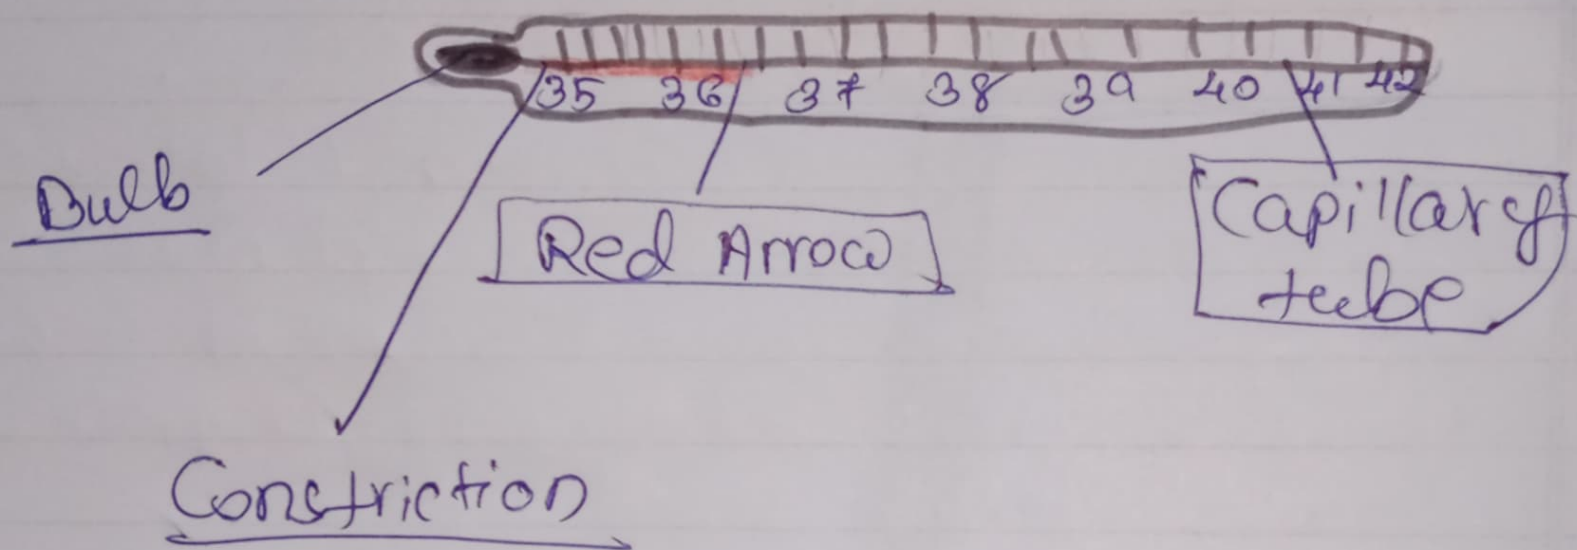 35 36 37 38 39 40 41 42
Bulb
Red Arrow
Capillary
tube
Constriction